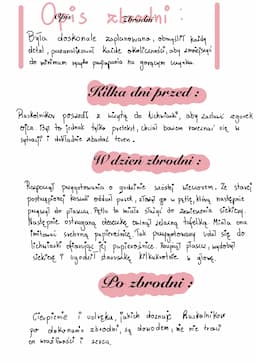 Opis zbrodni:
Opis zbrodni
Była doskonale zaplanowana, obmyślił każdy
detal, przeanalizował każde okoliczności, aby zmniejszyć
do minimum ryzyko przyłapania na gorącym uczynku.
Kilka dni przed :
Raskolnikow poszedł z wizytą do lichwiarki, aby zastawić zegarek
ojca. Był to jednak tylko pretekst, chciał bowiem rozeznać się w
sytuacji i dokładnie zbadać teren.
W dzień zbrodni :
Rozpoczął przygotowania o godzinie szóstej wieczorem. Ze starej
postrzępionej koszuli oddarł pasek, z
go w pętlę, którą następnie
przyszył do płaszcza. Pętla ta miała służyć do zawieszenia siekiery.
Następnie ostruganą deseczkę owinął żelazną tafelką. Miała ona
imitować srebrną papierośnicę. Tak przygotowany udał się do
lichwiarki oferując jej papierośnicę. Rozpiął płaszcz, wydobył
siekierę i ugodził staruszkę kilkukrotnie w głowę.
Po zbrodni :
Cierpienie i udręka, jakich doznaje Raskolnikow
po dokonaniu zbrodni, są dowodem, że nie traci
on wrażliwości i serca.